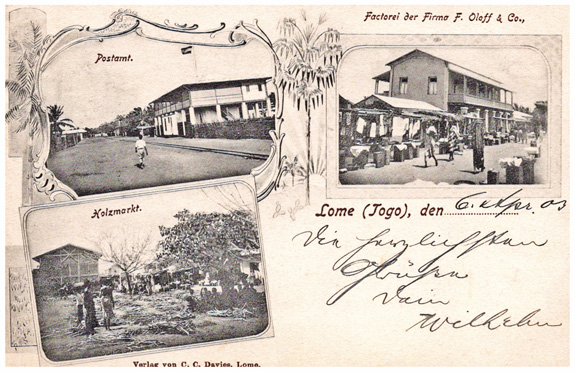 Postamt.
Factorei der Firma F. Oloff & Co.,
Holzmarkt.
Lome (Togo), den 6. 03
Die herzlichsten
Grüße
Dein
Wilhelm
Verlag von C. C. Davies, Lome.